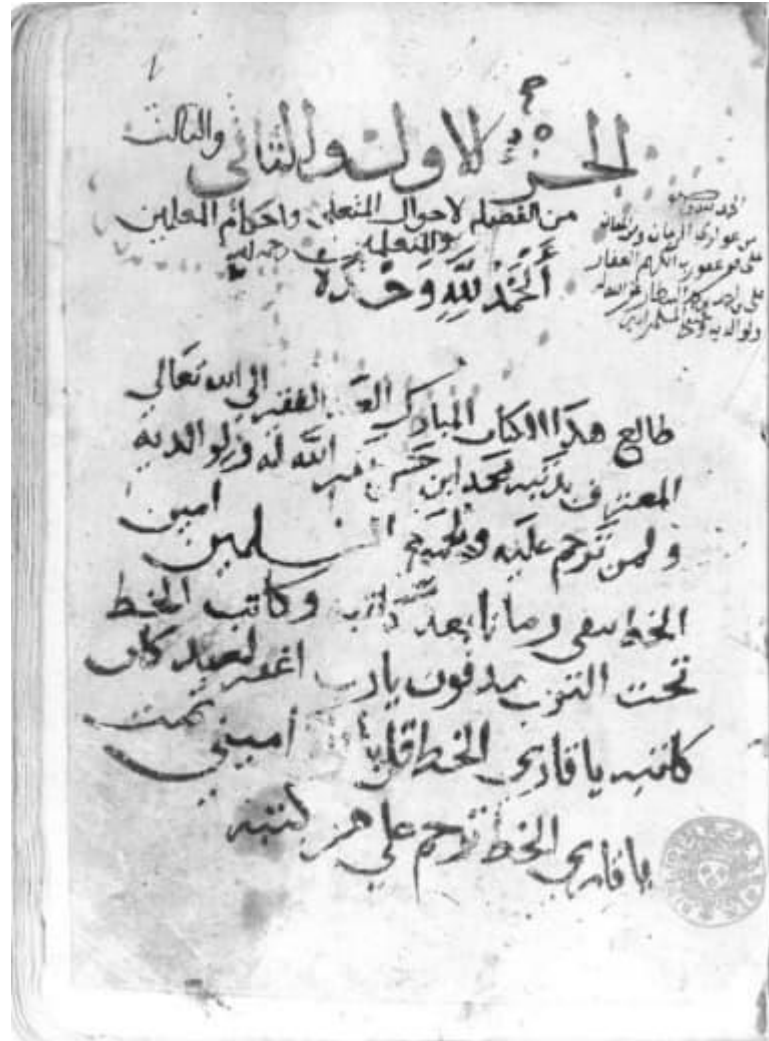 الجزء الاول والثاني والثالث
من الفضيله لاحوال المتعلمين واحكام المعلمين
والمتعلمين رحمه الله
أَلْحَمْدُ لِلَّهِ وَحْدَهُ
الحمد لله
من عواري الزمان
على يد عفو ربه الكريم الغفار
غفر الله له
ولوالديه ولجميع المسلمين امين
طالع هذا الكتاب المبارك العبد الفقير الى الله تعالى
المعترف بذنبه محمد ابن حسن غفر الله له ولوالديه
ولمن ترحم عليه ولجميع المسلمين امين
الخط يبقى زمانا بعد كاتبه وكاتب الخط
تحت الترب مدفون يارب اغفر لعبد كان
كاتبه يا قاري الخط قل امين تمت
يا قاري الخط ترحم علي من كتبه